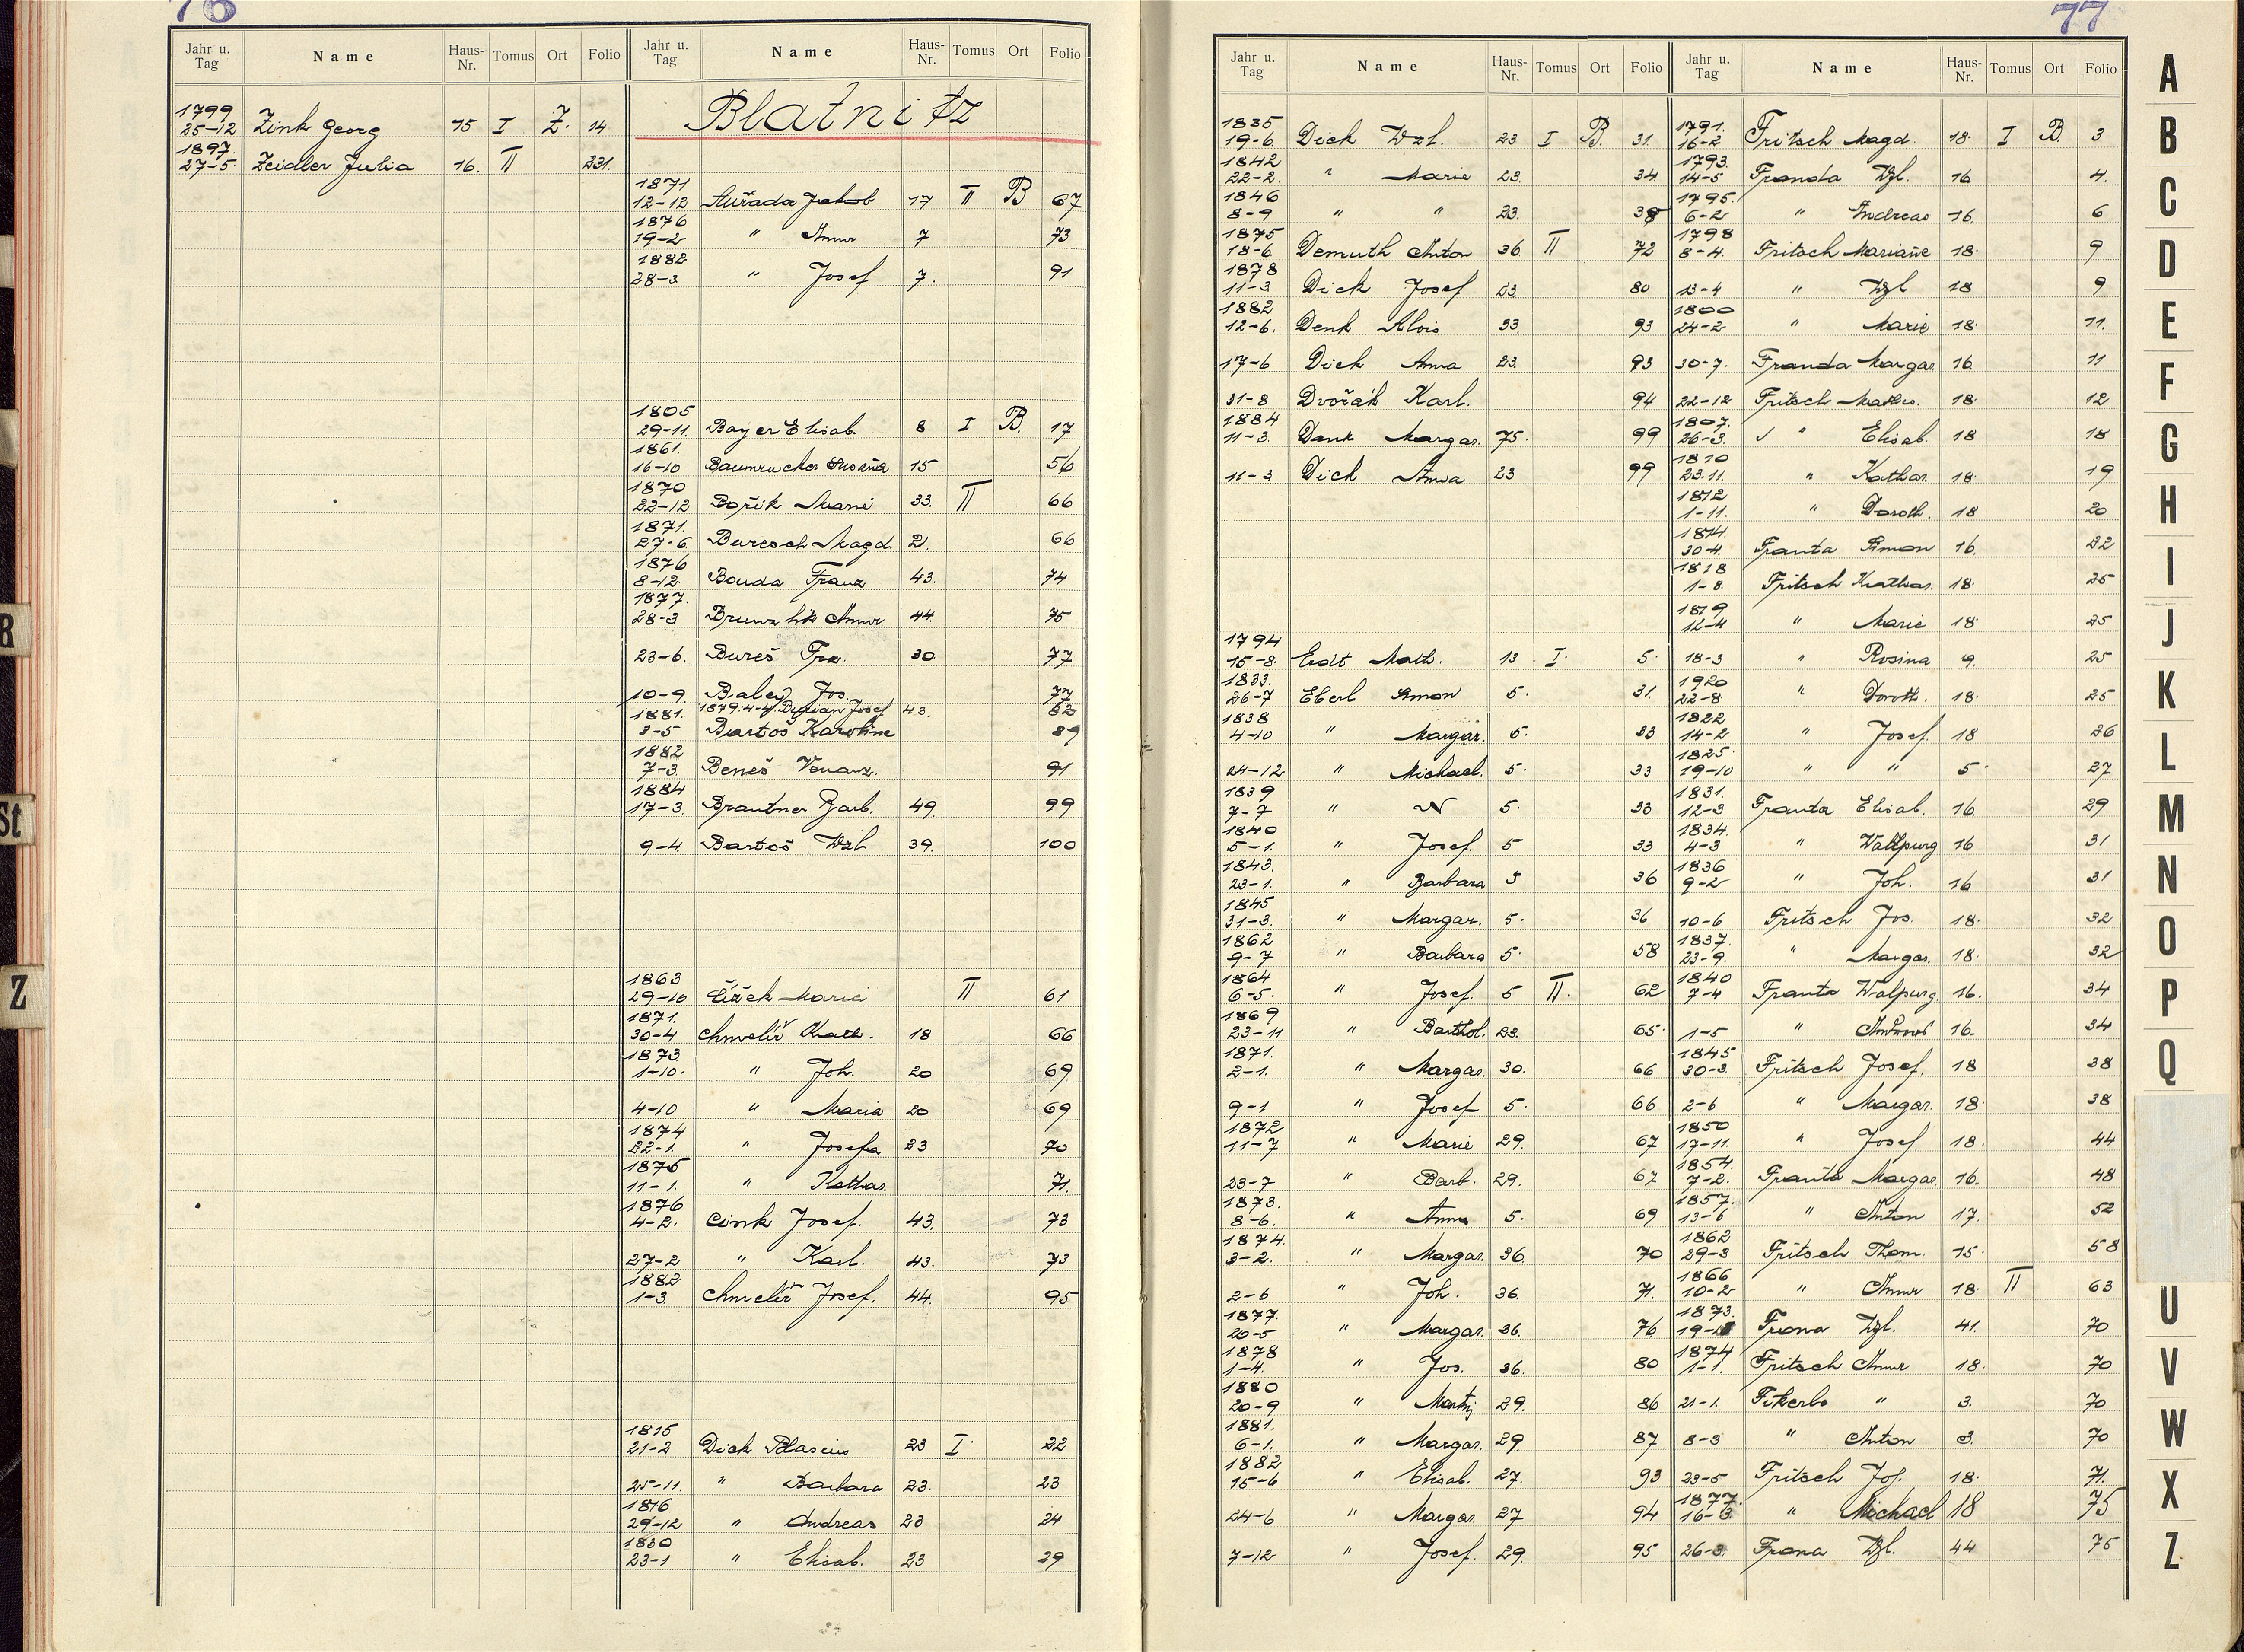 76
Jahr u. Tag Name Haus-Nr. Tomus Ort Folio
1799
25-12 Zink Georg 15 I Z. 14
1897.
27-5. Zeidler Julia 16. II 231.
Jahr u. Tag Name Haus-Nr. Tomus Ort Folio
Blatnitz
1871
12-12 Auřada Jakob 17 II B 67
1876
19-2 " Anna 7 73
1882
28-3 " Josef 7. 91
1805
29-11. Bayer Elisab. 8 I B. 17
1861.
16-10 Baumrucker 15 56
1870
22-12 Bořik Marie 33. II 66
1871.
27-6. Buresch Magd. 2. 66
1876
8-12. Bouda Franz 43. 74
1877.
28-3 Anna 44. 75
23-6. Bureš Frz. 30 77
10-9. Jos. 77
1879: 4-4. Josef 43. 82
1881.
3-5 Bartoš Karoline 89
1882
7-3. Beneš Venanz. 91
1884
17-3. Brantner Barb. 49. 99
9-4. Bartoš Wzl. 39. 100
1863
29-10 Čížek Marie II 61
1871.
30-4 Chmelíř Kath. 18 66
1873.
1-10. " Joh. 20 69
4-10 " Maria 20 69
1874
22-1. " Josefa 23 70
1875
11-1. " Kathar. 71.
1876
4-2. Cink Josef. 43. 73
27-2 " Karl. 43. 73
1882
1-3. Chmelíř Josef. 44. 95
1815
21-2 Dick Blasius 23 I. 22
25-11. " Barbara 23. 23
1816
29-12 " Andreas 23 24
1830
23-1 " Elisab. 23 29
77
Jahr u. Tag Name Haus-Nr. Tomus Ort Folio
1835
19-6. Dick Wzl. 23 I B. 31.
1842
22-2. " Marie 23. 34.
1846
8-9 " " 23. 38
1875
18-6. Demuth Anton 36. II 72
1878
11-3 Dick Josef 23. 80
1882
12-6. Denk Alois 33. 93
17-6 Dick Anna 23. 93
31-8 Dvořák Karl. 94
1884
11-3. Denk Margar. 75. 99
11-3 Dick Anna 23 99
1794
15-8. Erdt Math. 13. I. 5.
1833.
26-7 Eberl Simon 5. 31.
1838
4-10 " Margar. 5. 33
24-12 " Michael. 5. 33
1839
7-7 " N 5. 33
1840
5-1. " Josef. 5 33
1843.
23-1. " Barbara 5 36
1845
31-3. " Margar. 5. 36
1862
9-7 " Barbara 5. 58
1864
6-5. " Josef. 5 II. 62
1869
23-11 " Barthol. 23. 65.
1871.
2-1. " Margar. 30. 66
9-1 " Josef 5. 66
1872
11-7 " Marie 29. 67
23-7 " Barb. 29. 67
1873.
8-6. " Anna 5. 69
1874.
3-2. " Margar. 36. 70
2-6 " Joh. 36. 71.
1877.
20-5 " Margar. 36. 76
1878
1-4. " Jos. 36. 80
1880
20-9 " Martin 29. 86
1881.
6-1. " Margar. 29. 87
1882
15-6 " Elisab. 27. 93
24-6 " Margar. 27 94
7-12 " Josef. 29. 95
Jahr u. Tag Name Haus-Nr. Tomus Ort Folio
1791.
16-2 Fritsch Magd. 18. I B. 3
1793.
14-5 Franda Wzl. 16 4.
1795.
6-2 " Andreas 16. 6
1798
8-4. Fritsch Mariane 18. 9
13-4 " Wzl 18 9
1800
24-2 " Marie 18. 11.
30-7. Franda Margar. 16. 11
22-12 Fritsch 18. 12
1807.
26-3. " Elisab. 18 18
1810
23.11. " Kathar. 18. 19
1812
1-11. " Doroth. 18 20
1814.
30-4. Franta Simon 16. 22
1818
1-8. Fritsch Kathar. 18. 25
1819
12-4 " Marie 18. 25
18-3 " Rosina 9. 25
1920
22-8. " Doroth. 18. 25
1822
14-2 " Josef. 18 26
1825.
19-10 " " 5. 27
1831.
12-3 Franta Elisab. 16. 29
1834.
4-3 " Wallpurg 16 31
1836
9-2 " Joh. 16 31
10-6 Fritsch Jos. 18. 32
1837.
23-9. " Margar. 18. 32
1840
7-4 Franta Walpurg. 16. 34
1-5 " 16. 34
1845
30-3. Fritsch Josef. 18 38
2-6 " Margar. 18. 38
1850
17-11. " Josef. 18. 44
1854.
7-2. Franta Margar. 16. 48
1857.
13-6 " Anton 17. 52
1862
29-3 Fritsch Thom. 15. 58
1866
10-2 " Anna 18. II 63
1873.
Wzl. 41. 70
1874
1-1. Fritsch Anna 18. 70
21-1. Fikerle " 3. 70
8-3 " Anton 3. 70
23-5 Fritsch Jos. 18. 71.
1877.
16-3. " Michael 18 75
26-3. Frana Wzl. 44 75
A
B
C
D
E
F
G
H
I
J
K
L
M
N
O
P
Q
U
V
W
X
Z
R
St
Z